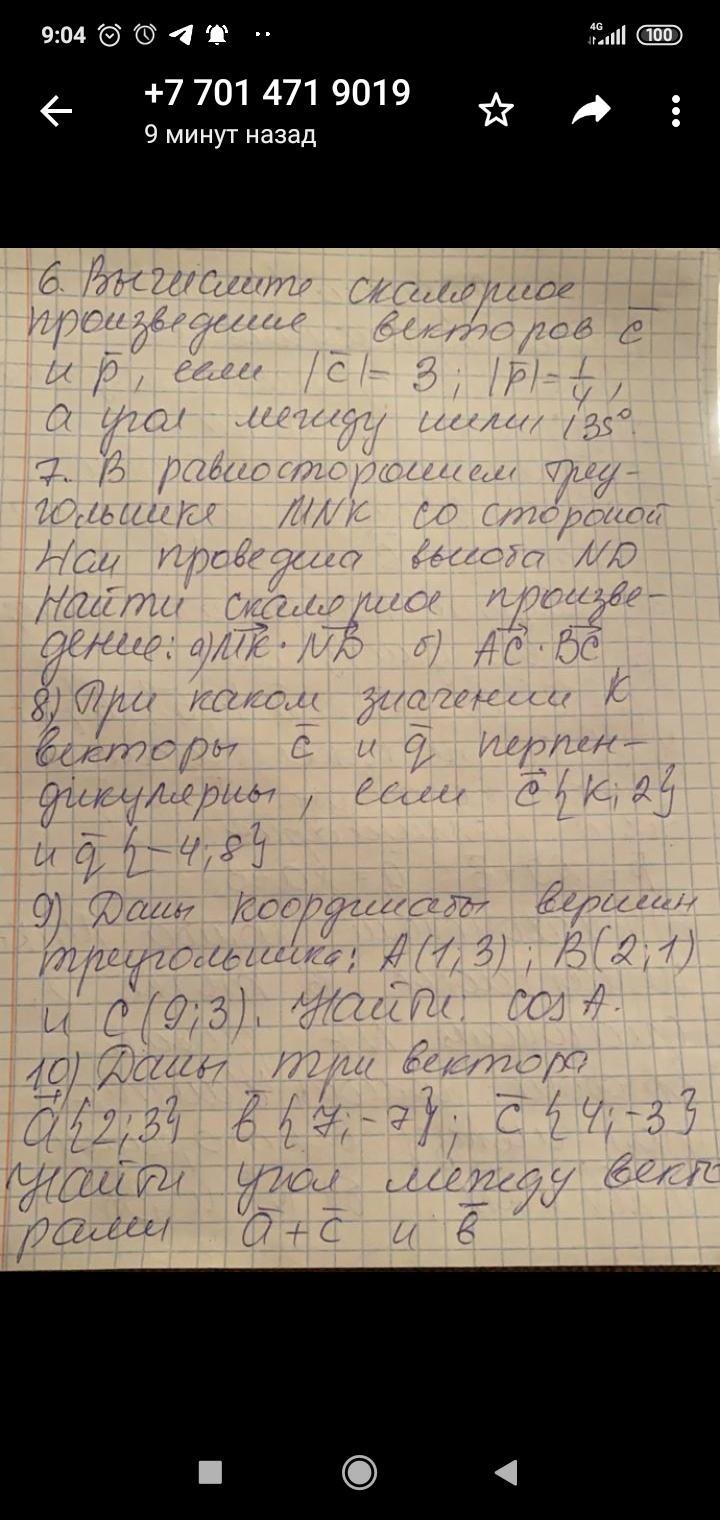 9:04
4G
100
+7 701 471 9019
9 минут назад
6. Вычислите скалярное
произведение векторов c̅
и p̅, если |c̅|= 3; |p̅|=1/4,
а угол между ними 135°.
7. В равностороннем треу-
гольнике MNK со стороной
проведена высота ND
Найти скалярное произве-
дение: а) MK · ND б) AC · BC
8) При каком значении К
векторы c̅ и q̅ перпен-
дикулярны, если c̅ {К; 2}
и q̅ {-4; 8}
9) Даны координаты вершин
треугольника: A(1;3); B(2;1)
и C(9;3). Найти: cos A.
10) Даны три вектора
a̅ {2;3} b̅ {7;-7}; c̅ {4;-3}
Найти угол между векто
рами a̅ + c̅ и b̅